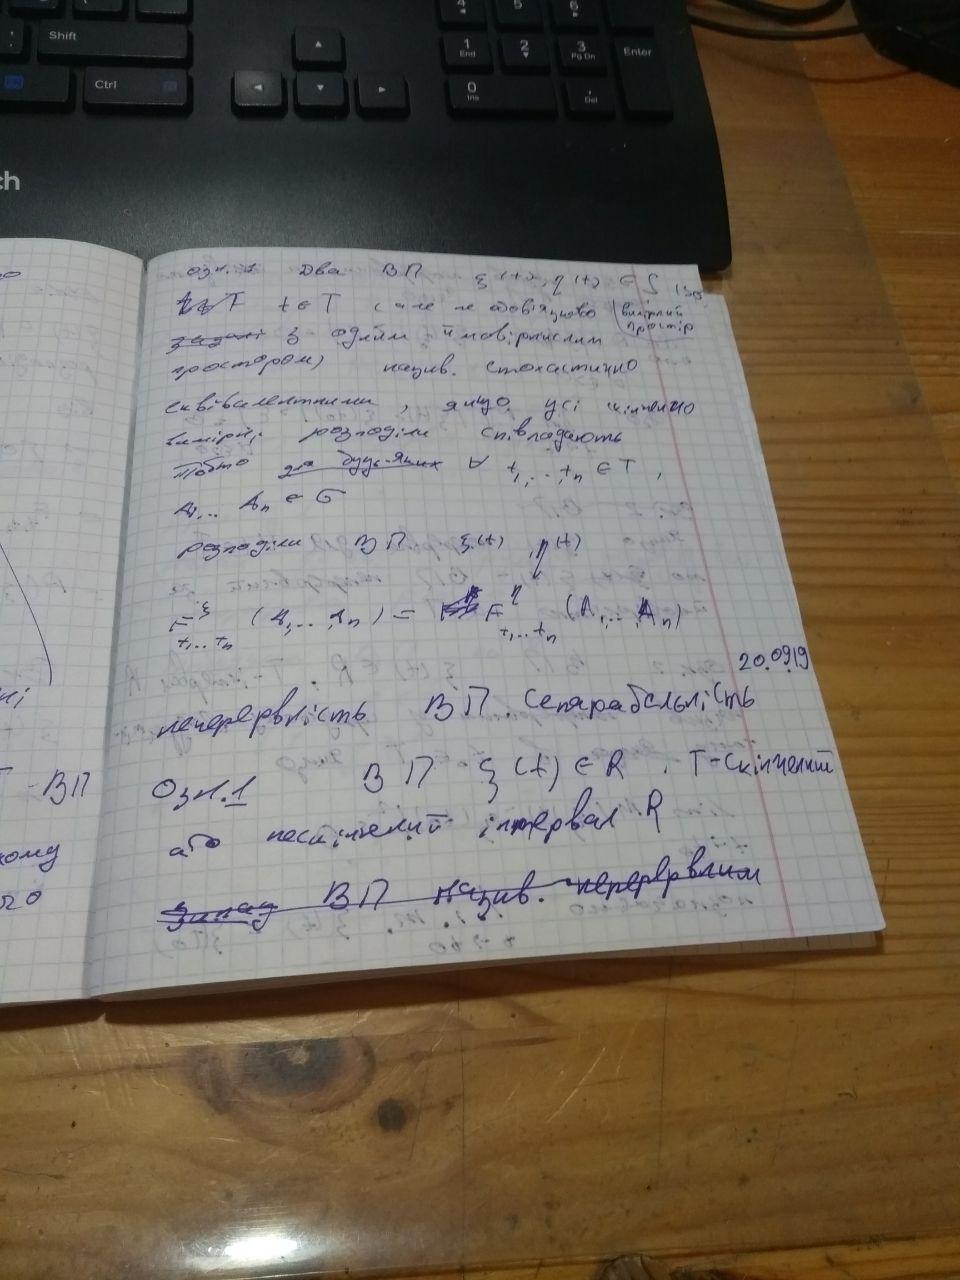 Shift
Ctrl
4
5
6
1
End
2
3
Pg Dn
Enter
0
Ins
Del
ch
Озн. 1 Два ВП ξ(t), η(t) ∈ S
t ∈ T (але не обов'язково
вимірний
простір
задані з одним ймовірнісним
простором) назив. стохастично
еквівалентними, якщо усі скінченно
вимірні розподіли співпадають
тобто для будь-яких ∀ t₁,...,tₙ ∈ T,
A₁... Aₙ ∈ G
розподіли ВП ξ(t), η(t)
F^ξ_{t₁...tₙ} (A₁,... Aₙ) = F^η_{t₁,...tₙ} (A₁,...,Aₙ)
20.09.19
неперервність ВП Сепарабельність
Озн.1 ВП ξ(t) ∈ R, T-Скінченний
або нескінчений інтервал R
ВП назив. неперервним
- ВП
кому